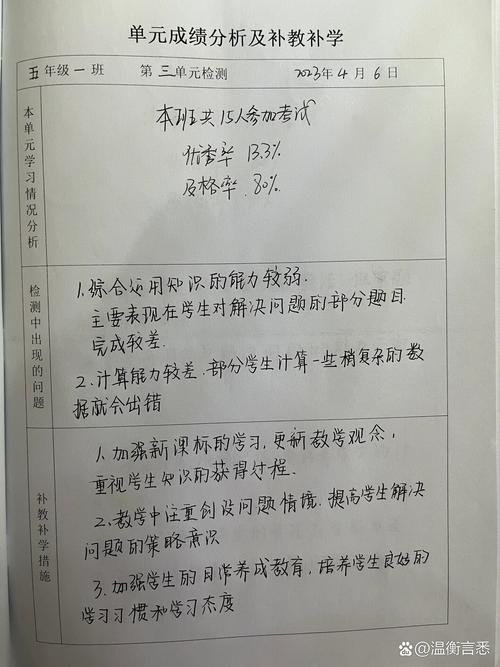 单元成绩分析及补教补学
五年级一班 第三单元检测 2023年4月6日
本单元学习情况分析
本班共15人参加考试
优秀率 13.3%
及格率 80%.
检测中出现的问题
1.综合运用知识的能力较弱.
主要表现在学生对解决问题的部分题目
完成较差.
2.计算能力较差.部分学生计算一些稍复杂的数
据就会出错
补教补学措施
1.加强新课标的学习,更新教学观念,
重视学生知识的获得过程.
2.教学中注重创设问题情境.提高学生解决
问题的策略意识
3.加强学生的日常养成教育,培养学生良好的
学习习惯和学习态度
Bai百家号@温衡言悉